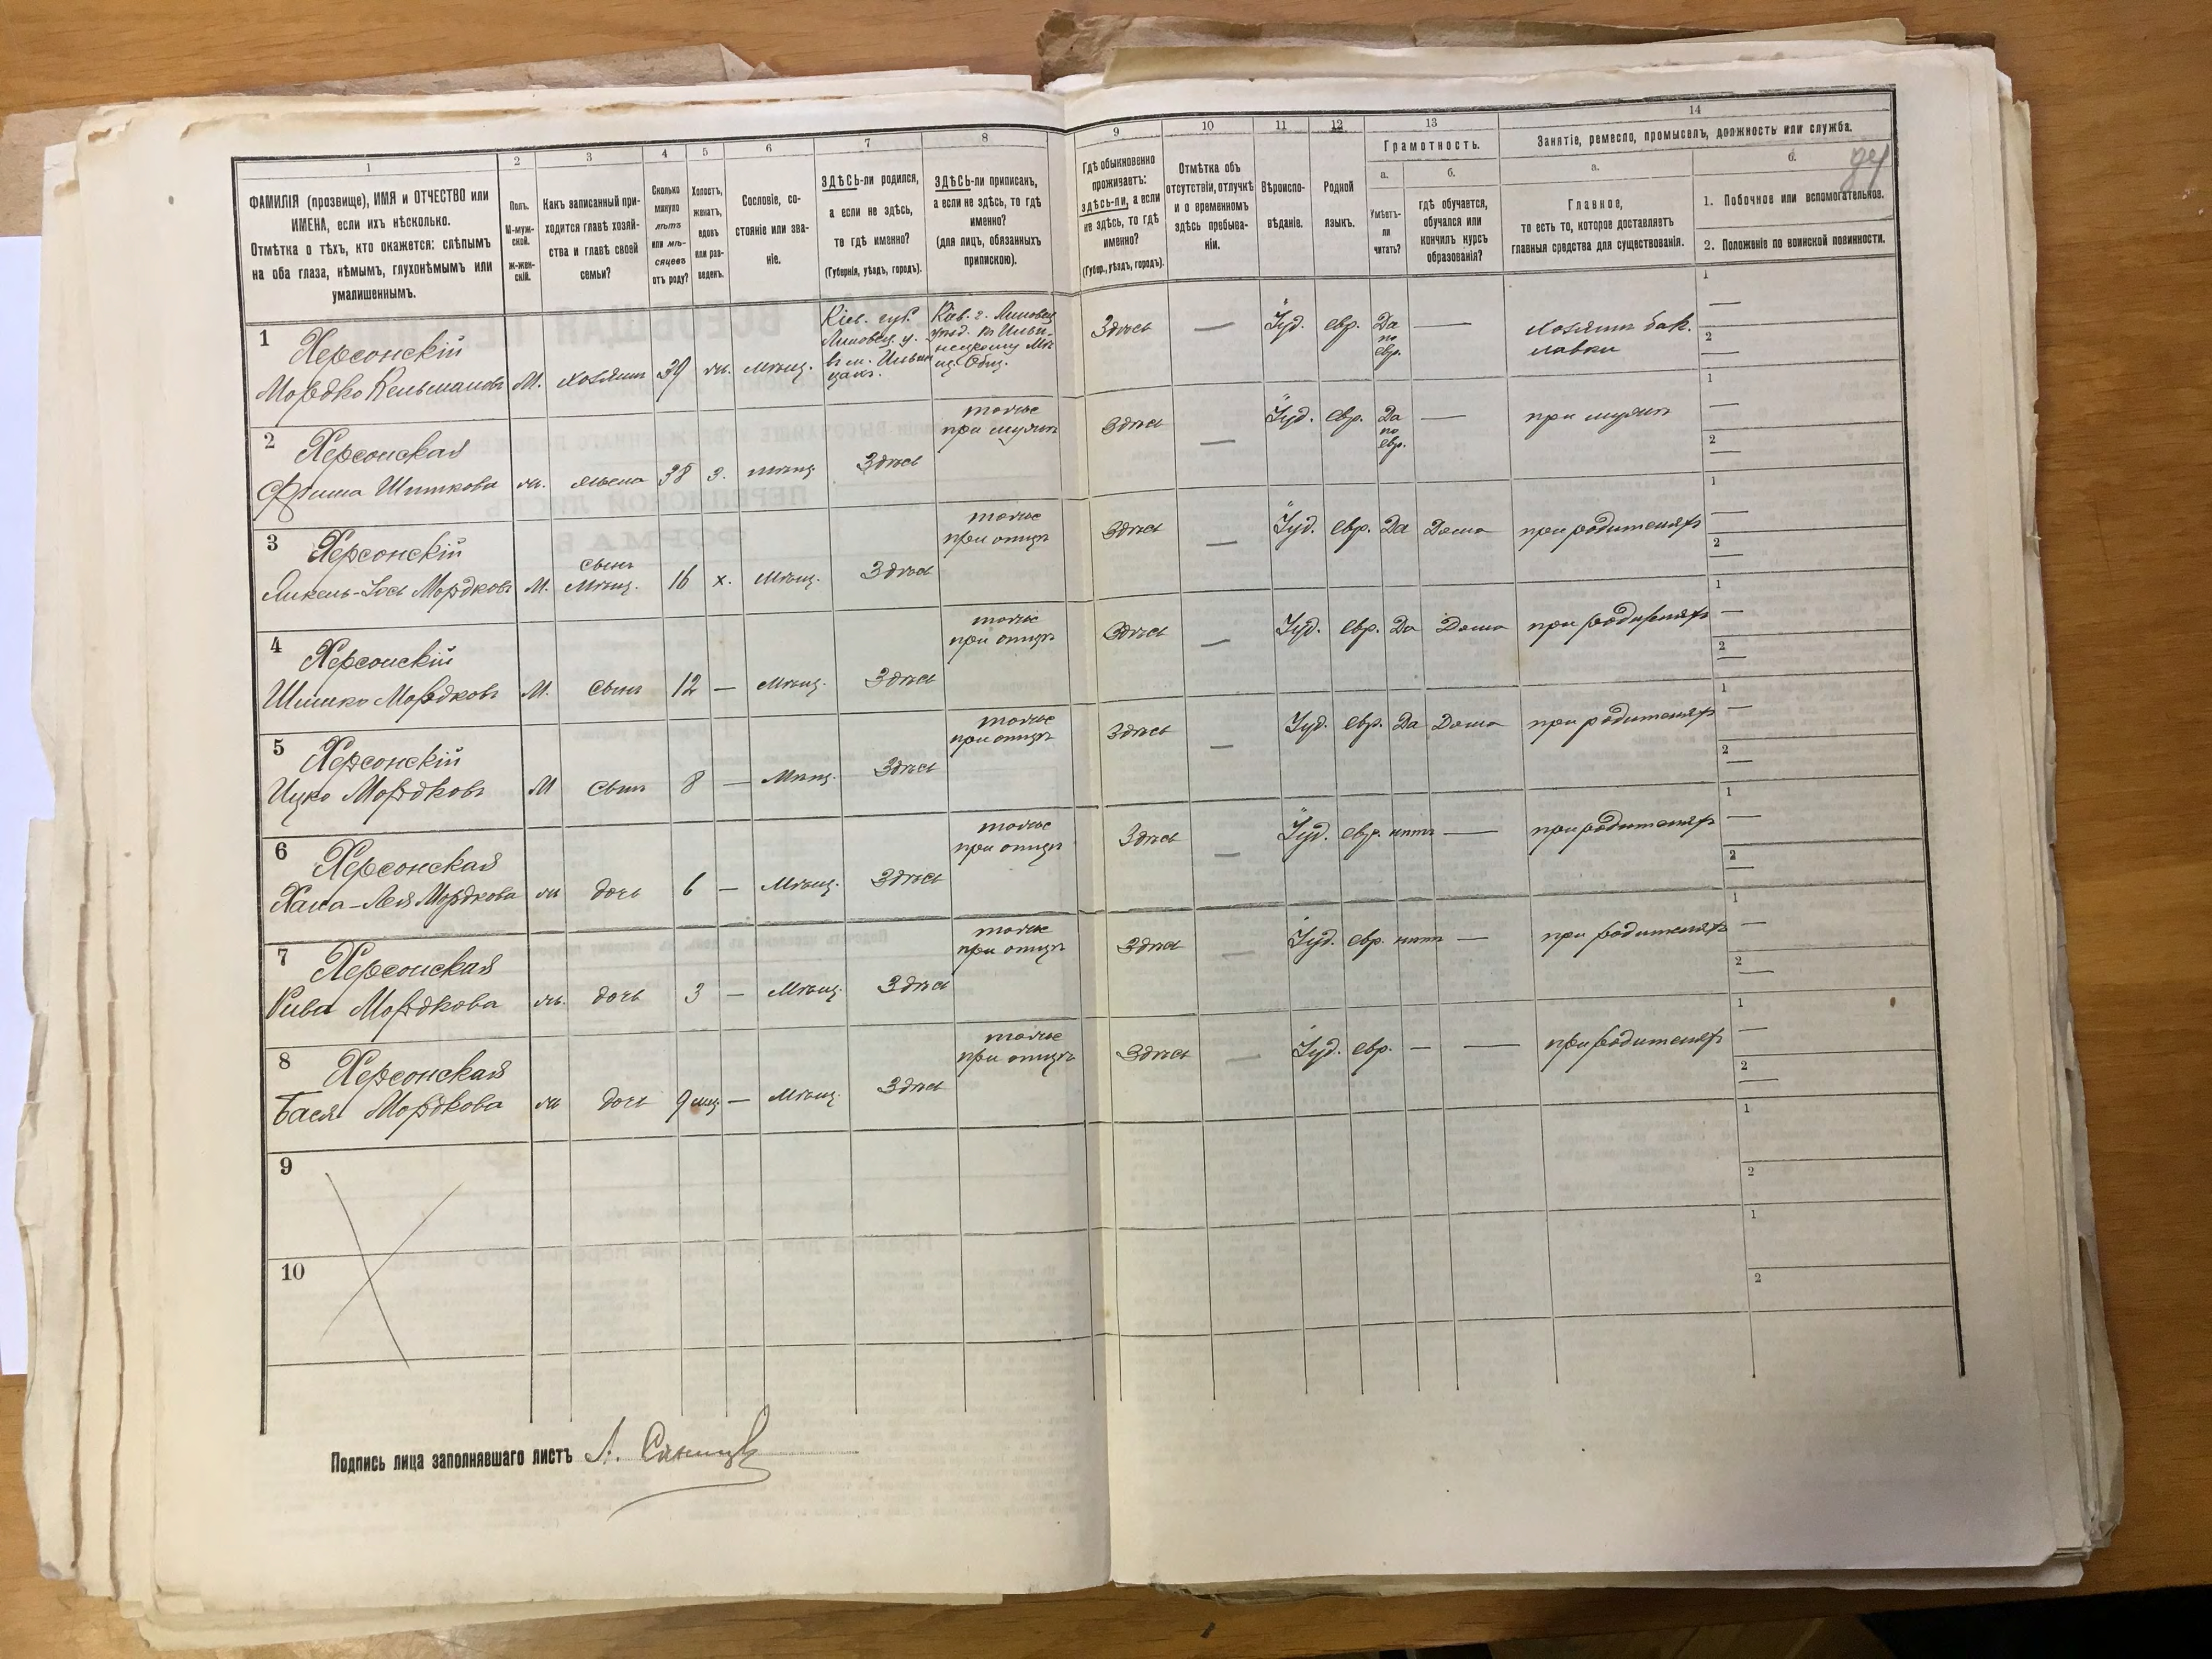 1
2
3
4
5
6
7
8
9
10
11
12
13
14
ФАМИЛІЯ (прозвище), ИМЯ и ОТЧЕСТВО или
ИМЕНА, если ихъ нѣсколько.
Отмѣтка о тѣхъ, кто окажется: слѣпымъ
на оба глаза, нѣмымъ, глухонѣмымъ или
умалишеннымъ.
Полъ.
М-муж-
ской.
ж-жен-
скій.
Какъ записанный при-
ходится главѣ хозяй-
ства и главѣ своей
семьи?
Сколько
минуло
лѣтъ
или мѣ-
сяцевъ
отъ роду?
Холостъ,
женатъ,
вдовъ
или раз-
веденъ.
Сословіе, со-
стояніе или зва-
ніе.
ЗДѢСЬ-ли родился,
а если не здѣсь,
то гдѣ именно?
(Губернія, уѣздъ, городъ).
ЗДѢСЬ-ли приписанъ,
а если не здѣсь, то гдѣ
именно?
(для лицъ, обязанныхъ
припискою).
Гдѣ обыкновенно
проживаетъ:
здѣсь-ли, а если
не здѣсь, то гдѣ
именно?
(Губер., уѣздъ, городъ).
Отмѣтка объ
отсутствіи, отлучкѣ
и о временномъ
здѣсь пребыва-
ніи.
Вѣроиспо-
вѣданіе.
Родной
языкъ.
Грамотность.
а.
Умѣетъ-
ли
читать?
б.
гдѣ обучается,
обучался или
кончилъ курсъ
образованія?
Занятіе, ремесло, промыселъ, должность или служба.
а.
Главное,
то есть то, которое доставляетъ
главныя средства для существованія.
б.
1. Побочное или вспомогательное.
2. Положеніе по воинской повинности.
1
Херсонскій
Мордко Кельмановъ М. хозяинъ 39 ж. мѣщ.
Кіев. губ.
Липовец. у.
Кіев. г. Липовец.
уѣзд.
Здѣсь — Іуд. евр. Да
по
евр.
—
хозяинъ бак.
лавки
1 —
2 —
2
Херсонская
Фрима Шмиткова ж. жена 38 З. мѣщ. Здѣсь
тоже
при мужѣ
Здѣсь — Іуд. евр. Да
по
евр.
— при мужѣ
1 —
2 —
3
Херсонскій
Янкель-Іось Мордковъ М. сынъ
Мѣщ. 16 х. Мѣщ. Здѣсь
тоже
при отцѣ
Здѣсь — Іуд. евр. Да Дома при родителяхъ
1 —
2 —
4
Херсонскій
Шишко Мордковъ М. сынъ 12 — Мѣщ. Здѣсь
тоже
при отцѣ
Здѣсь — Іуд. евр. Да Дома при родителяхъ
1 —
2 —
5
Херсонскій
Ицко Мордковъ М сынъ 8 — Мѣщ. Здѣсь
тоже
при отцѣ
Здѣсь — Іуд. евр. Да Дома при родителяхъ
1 —
2 —
6
Херсонская
Хана-Лея Мордкова ж дочь 6 — Мѣщ. Здѣсь
тоже
при отцѣ
Здѣсь — Іуд. евр. нѣтъ — при родителяхъ
1 —
2 —
7
Херсонская
Рива Мордкова ж. дочь 3 — Мѣщ. Здѣсь
тоже
при отцѣ
Здѣсь — Іуд. евр. нѣтъ — при родителяхъ
1 —
2 —
8
Херсонская
Бася Мордкова ж дочь 9 мѣс — Мѣщ. Здѣсь
тоже
при отцѣ
Здѣсь — Іуд. евр. — — при родителяхъ
1 —
2 —
9
1
2
10
1
2
Подпись лица заполнявшаго листъ А.